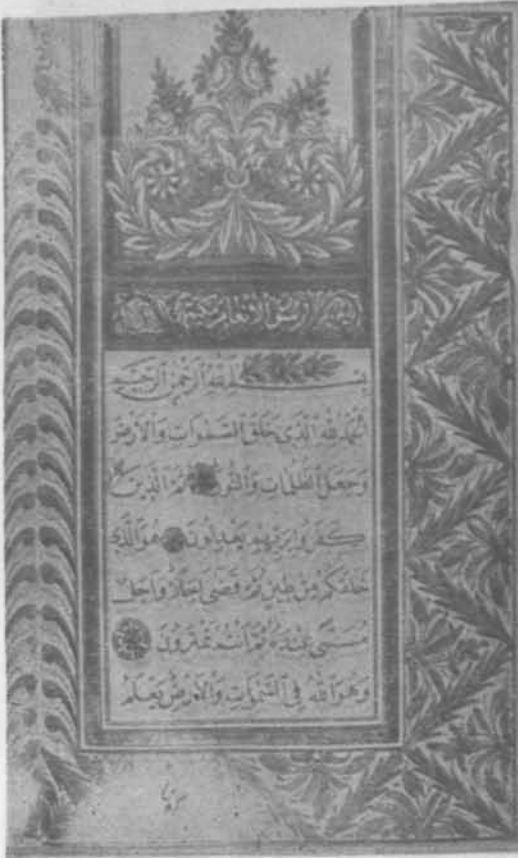 سورة الأنعام مكية
بسم الله الرحمن الرحيم
الحمد لله الذي خلق السموات والأرض
وجعل الظلمات والنور ثم الذين
كفروا بربهم يعدلون هو الذي
خلقكم من طين ثم قضى أجلا وأجل
مسمى عنده ثم أنتم تمترون
وهو الله في السموات والأرض يعلم